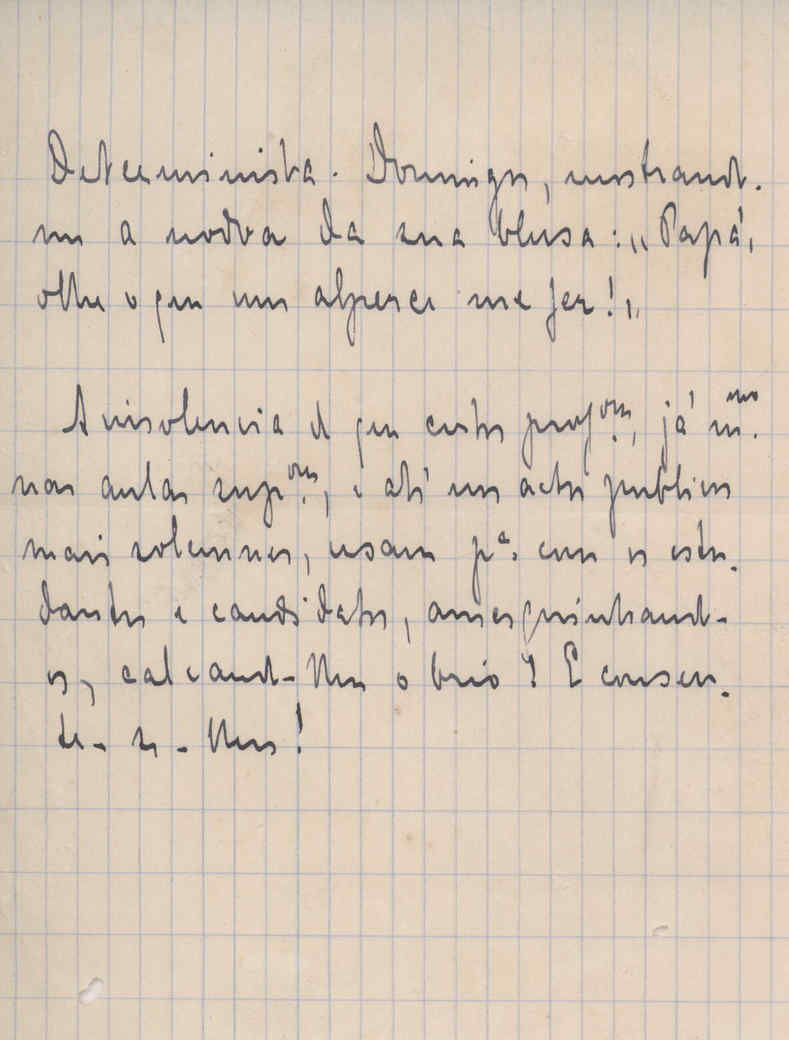 Determinista. Domingos, mostrando-
me a nodoa da sua blusa: „Papá,
olhe o que um alperce me fez!„
A insolencia de que certos prof.ores, já m.mo
nas aulas sup.ores, e até nos actos publicos
mais solennes, usam p.ª com os estu-
dantes e candidatos, amesquinhando-
os, calcando-lhes o brio! E consen-
te-se-lhes!